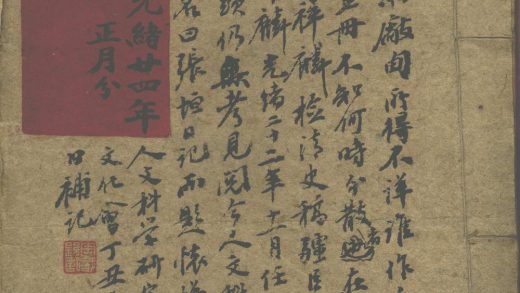 厰甸所得不詳誰作
冊不知何時分散
祥麟檢清史稿疆臣
麟光緒二十二年十一月任
仍無考見閱今人文
名曰張垣日記而題懷
光緒廿四年
正月分
人文科学研究
文化會丁丑
日補記